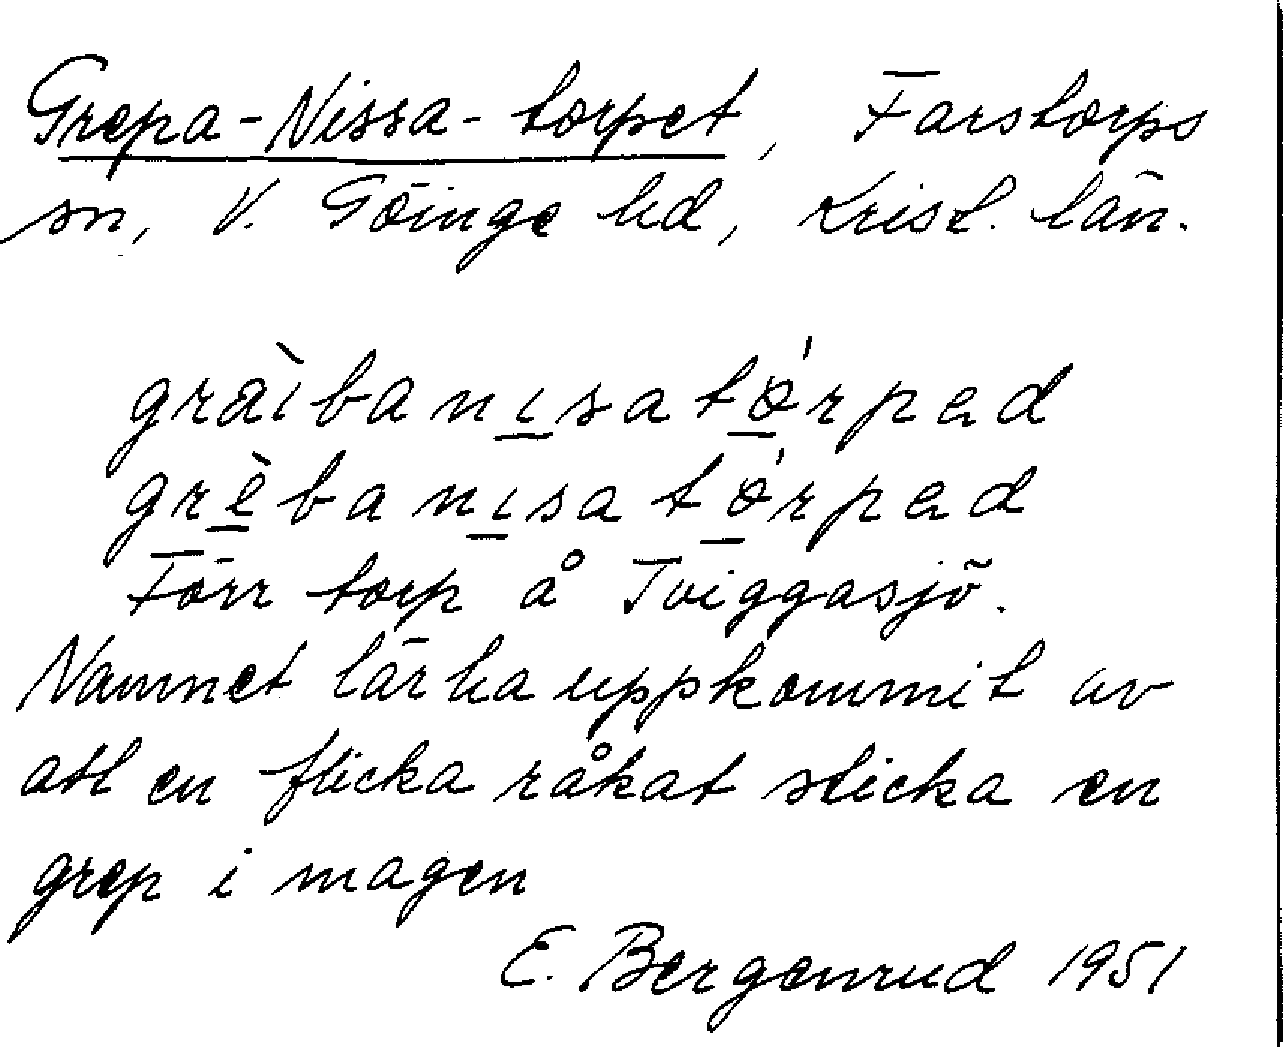 Grepa-Nissa-torpet, Farstorps
sn, V. Göinge hd, Krist. län.
graìbanı̲sató̲rpəd
grè̲banı̲sató̲rpəd
Förr torp å Tviggasjö.
Namnet lär ha uppkommit av
att en flicka råkat sticka en
grep i magen
E. Bergenrud 1951